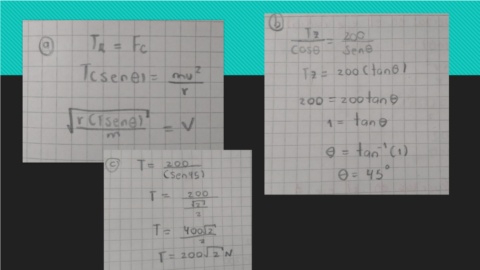 a
Tx = Fc
T(senθ) = mv²/r
√(r(Tsenθ)/m) = V
b
Tx/Cosθ = 200/senθ
Tx = 200(tanθ)
200 = 200tanθ
1 = tanθ
θ = tan⁻¹(1)
θ = 45°
c
T = 200/(sen45)
T = 200/(√2/2)
T = 400√2/2
T = 200√2 N